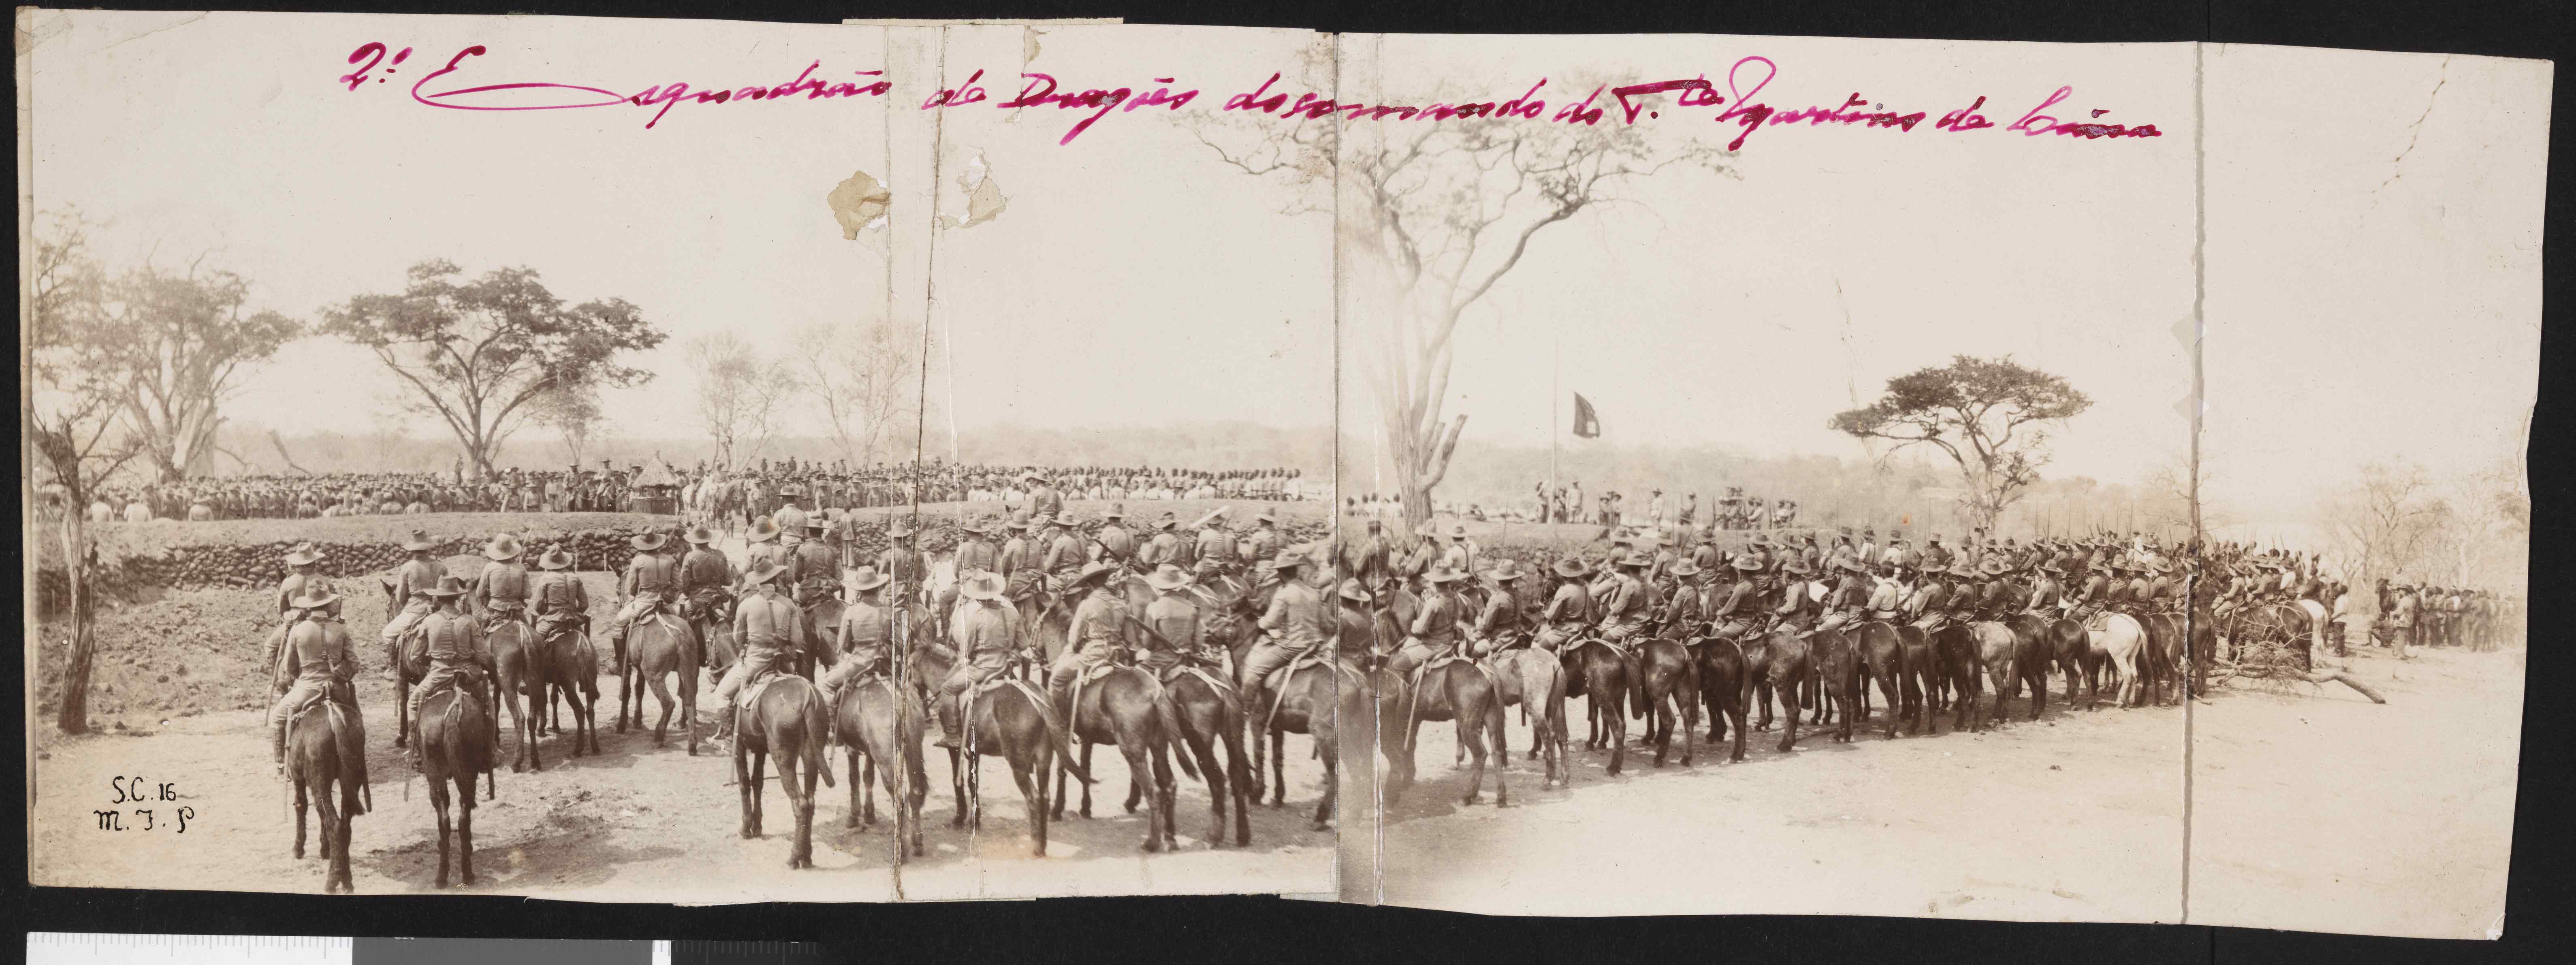 2.º Esquadrão de Dragões do comando do T.te Martins de Lima
S.C. 16
M. J. P